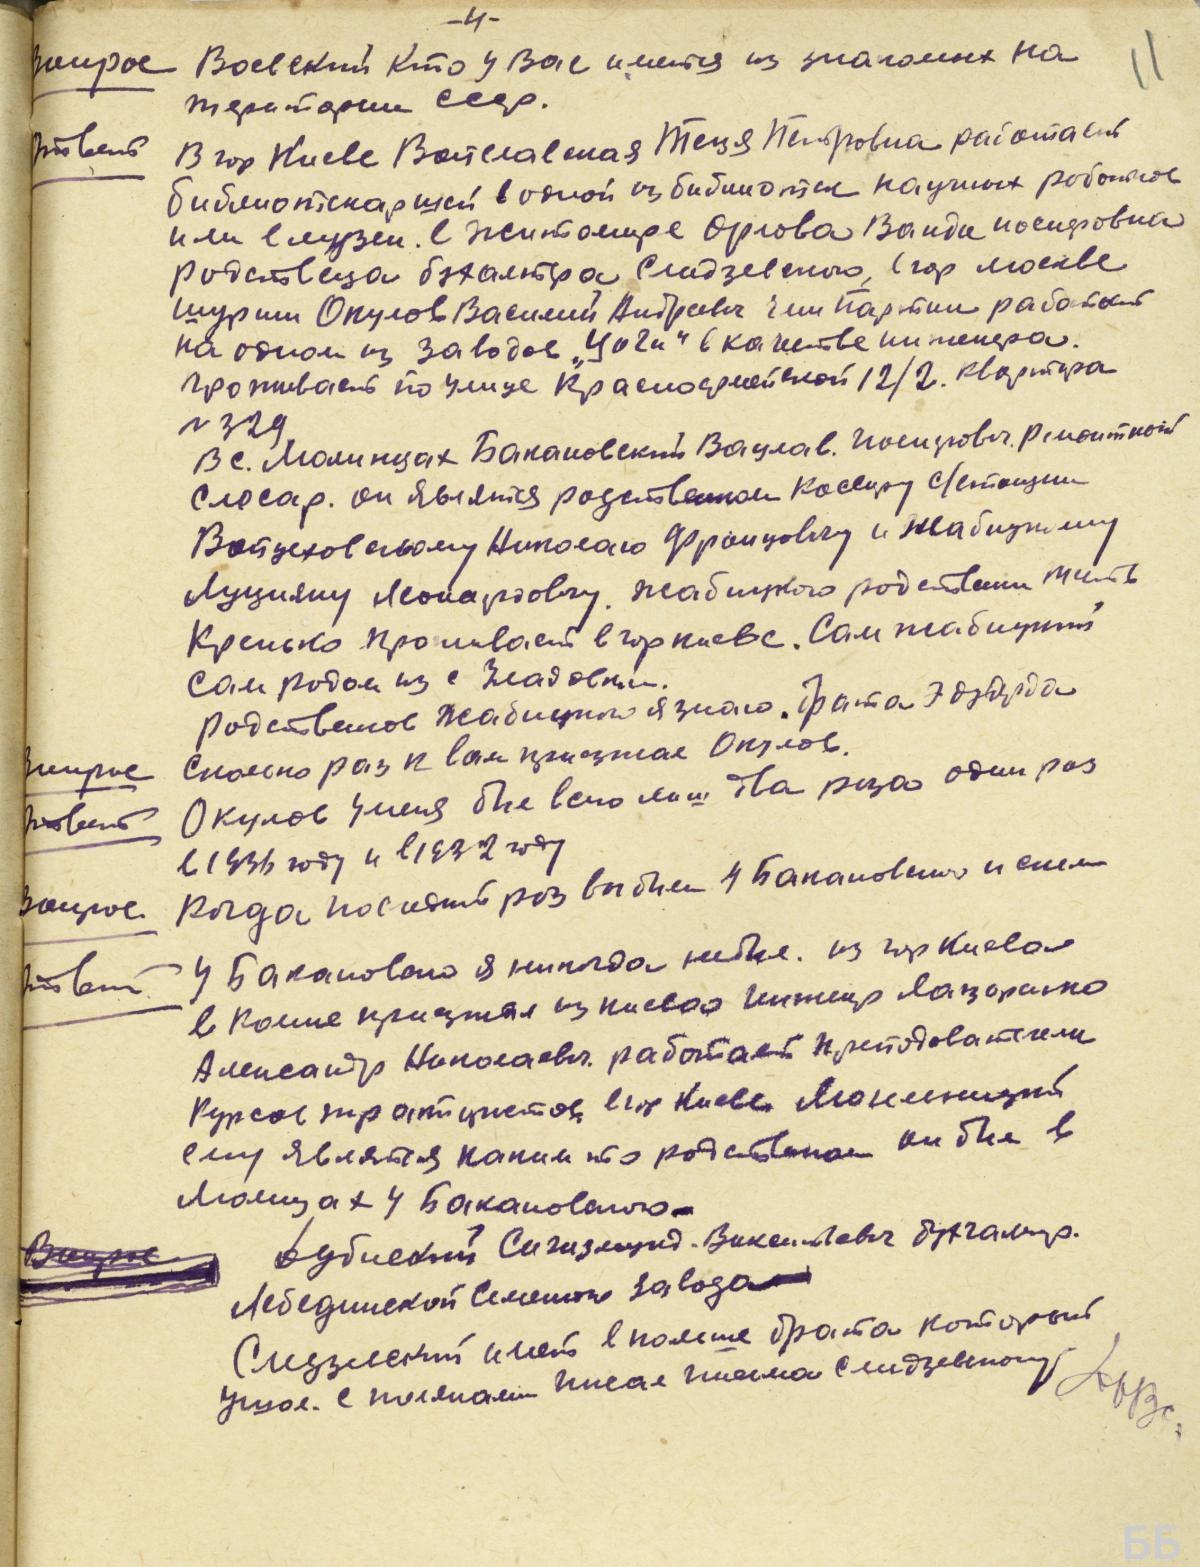 -4-
11
Вопрос Воевский Кто у Вас имется из знакомых на
територии ссср.
Ответ В гор Киеве Петровна работает
библиотекаршей в одной из библиотек научных роботков
или в музеи. в житомире Орлова Ванда иосифовна
родствеца бухалтра Слидзевского, в гор москве
шурин Окулов Василий Андревич член Партии работает
на одном из заводов в качестве инженера.
проживает по улице Красноармейской 12/2. квартра
№ 329
В с. Молинцах Бакановский Вацлав. иосифович. ремонтной
слесар. он являтся родствеником Касиру с/станции
Войцеховскому Николаю Францовичу и Жабицкому
Луцияну Леонардовичу. Жабицкого родственик
проживает в гор киеве. Сам жабицкий
сам родом из с
родствеников Жабицкого я знаю. брата Эдуарда
Вопрос Сколко раз к вам приезжал Окулов.
Ответ Окулов у меня был всего лиш два раза один раз
в 1936 году и в 1932 году
Вопрос Когда последний раз вы были у Бакановского и с кем
Ответ У Бакановского я никогда небыл. из гор Киева
приезжал из киева Инженер Лазаренко
Александр Николаевич. работает преподователем
Курсов в гор Киеве
ему являтся каким то родствеником он был в
Молицах у Бакановского
Вопрос Сигизмунд. Викентьевич бухгалтер.
Лебединской завода
Слидзевский имет в полше брата который
ушол. с поляками писал писма Слидзевскому
ББ